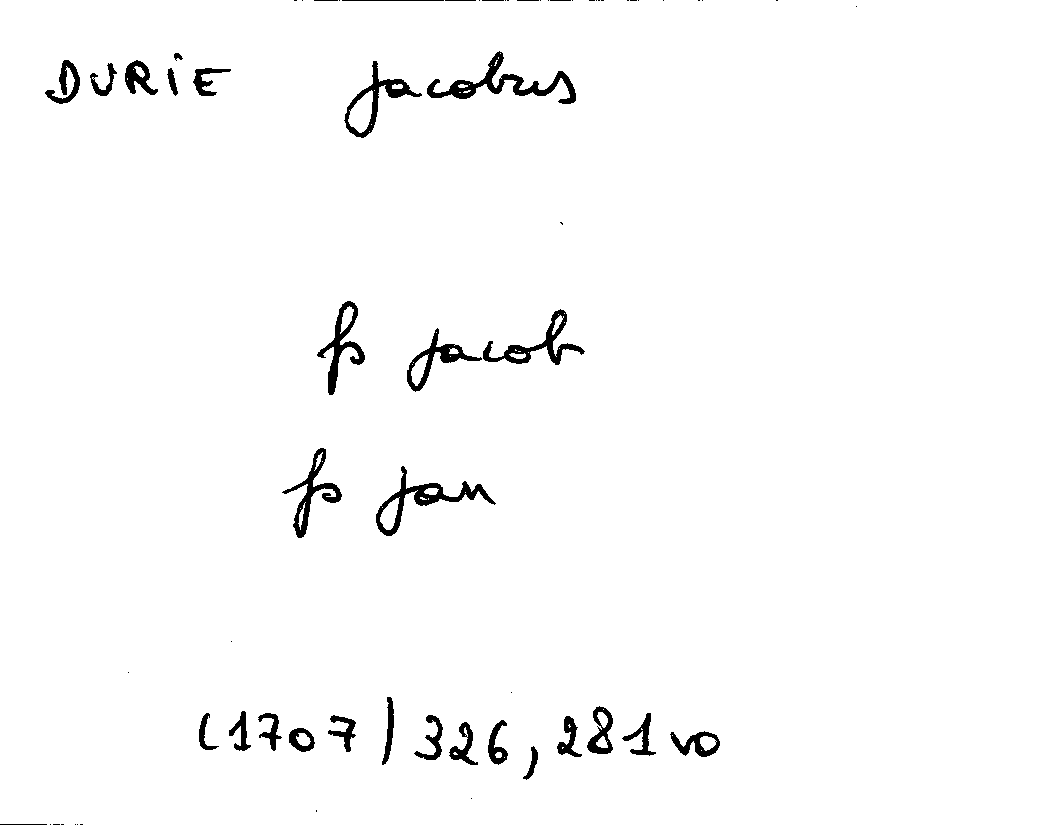 DURIE Jacobus
fs Jacob
fs Jan
(1707) 326, 281 vo